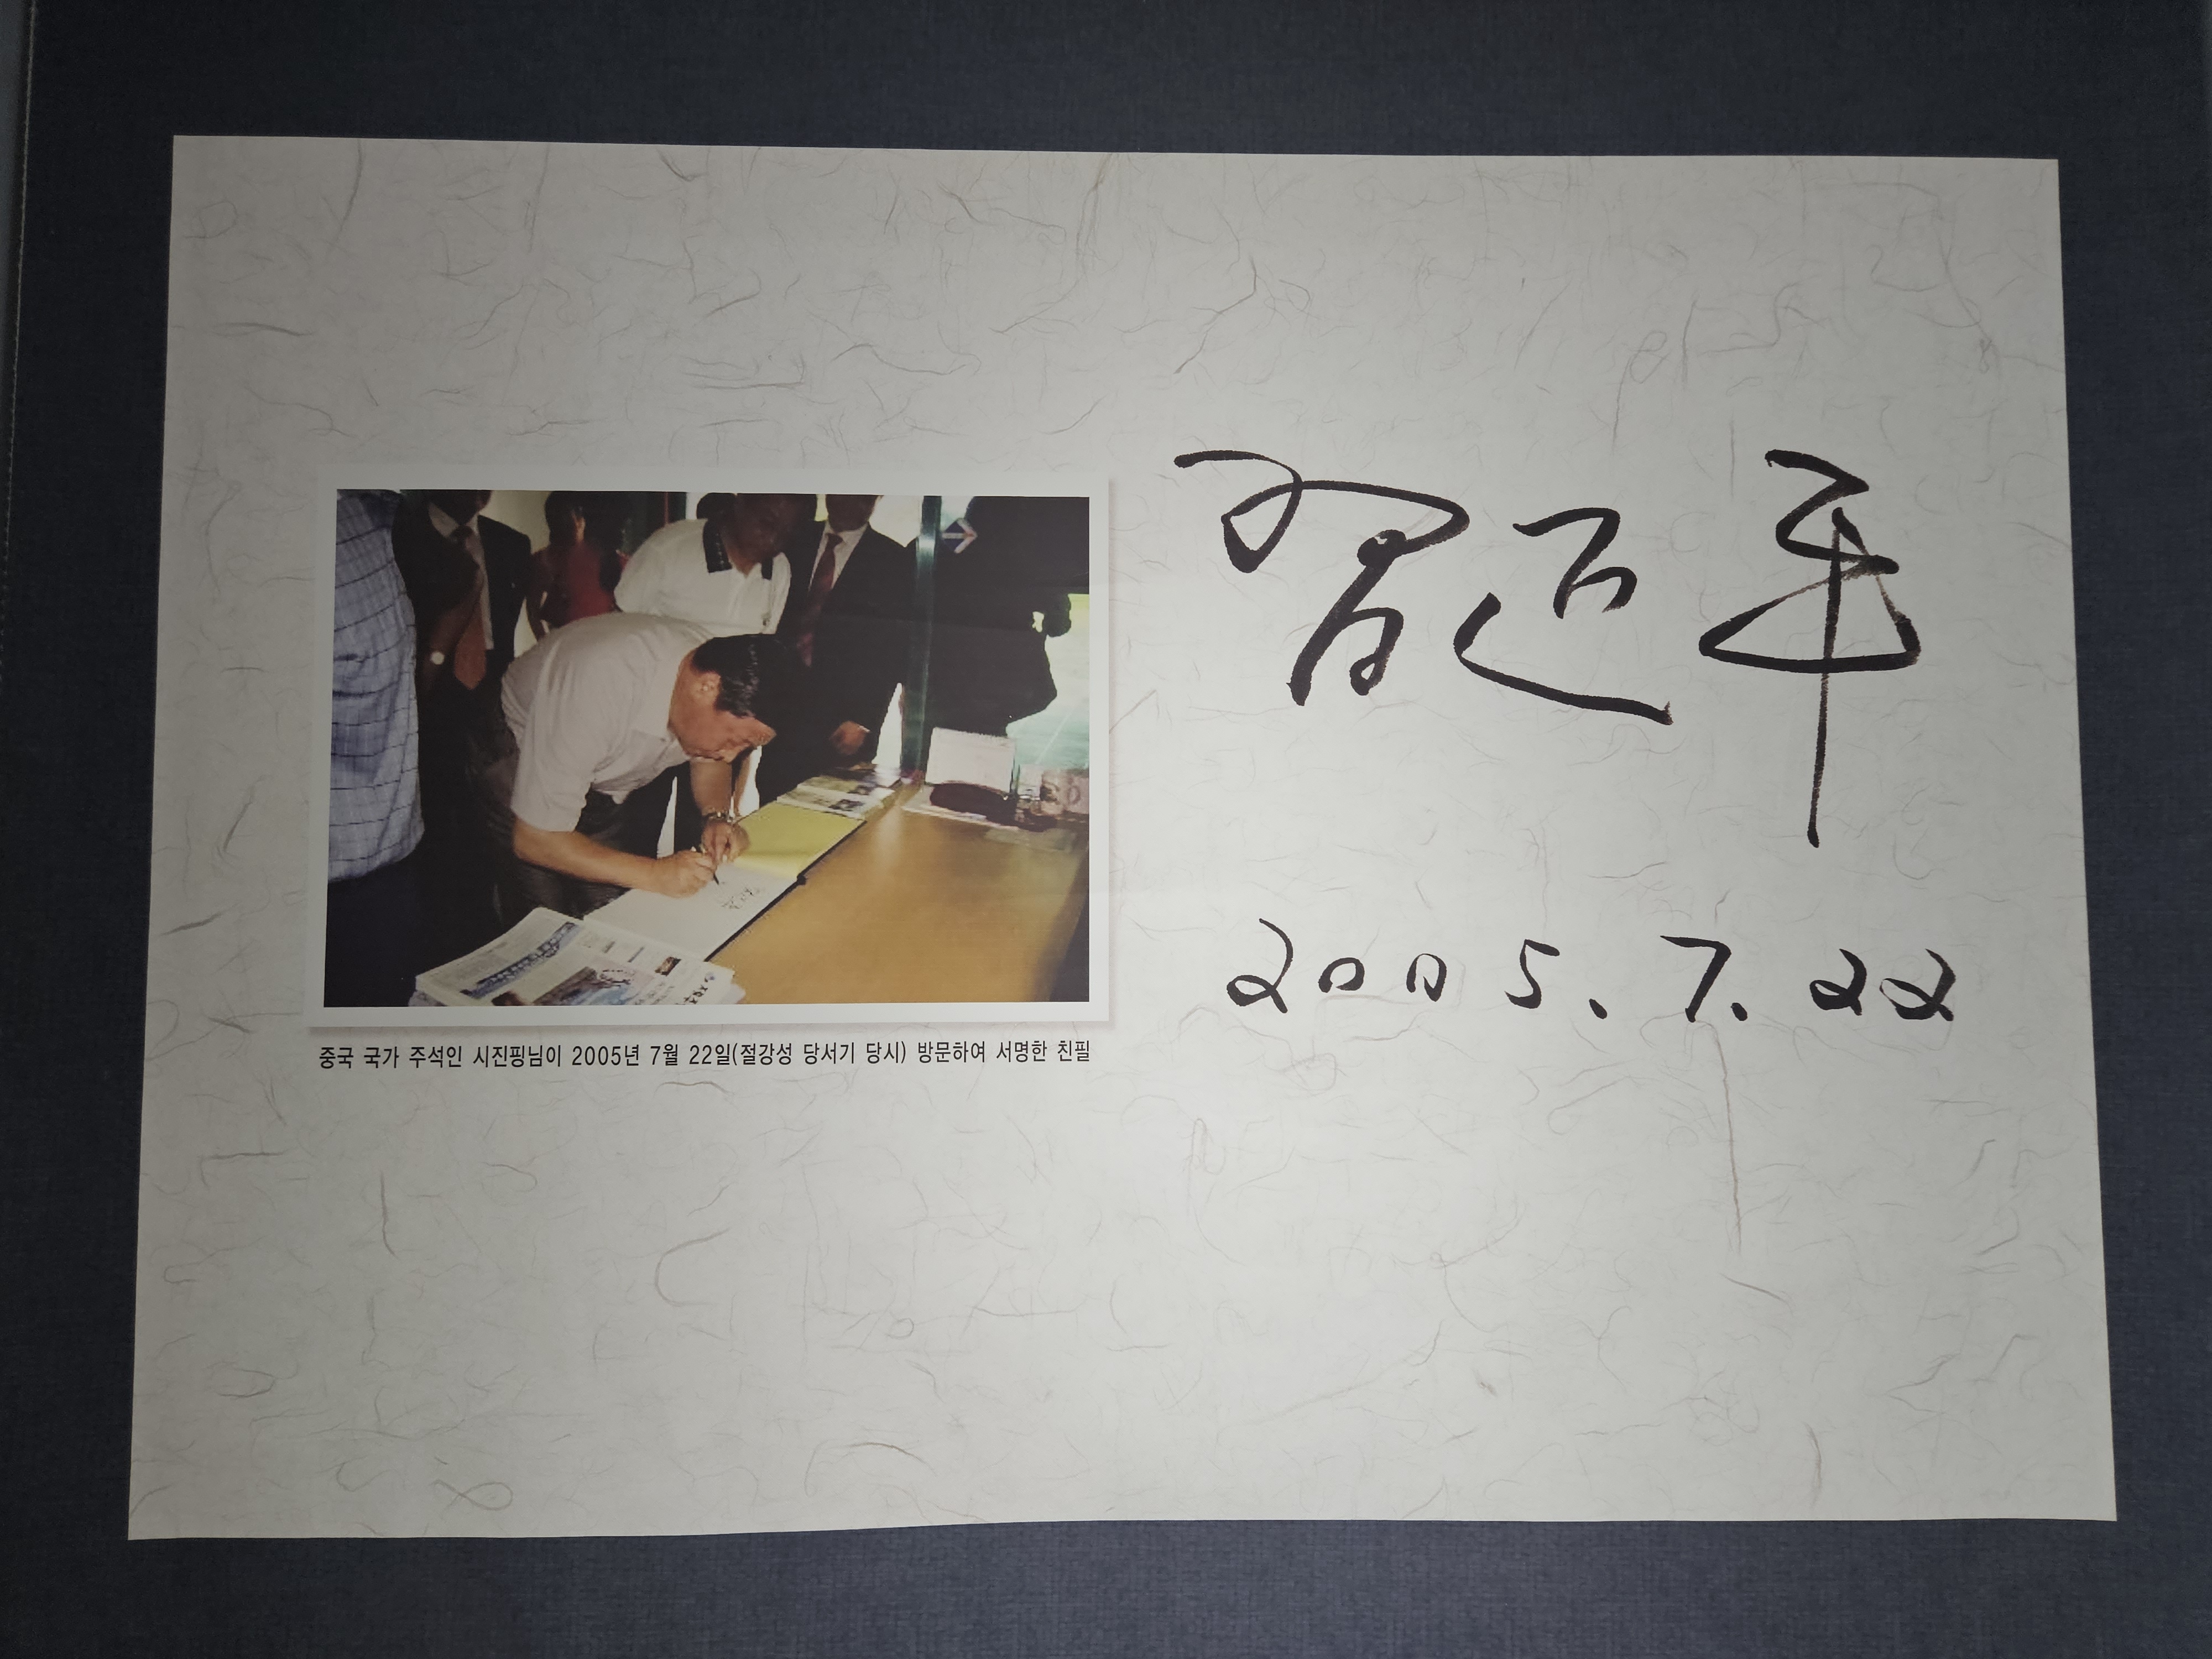 习近平
2005. 7. 22
중국 국가 주석인 시진핑님이 2005년 7월 22일(절강성 당서기 당시) 방문하여 서명한 친필